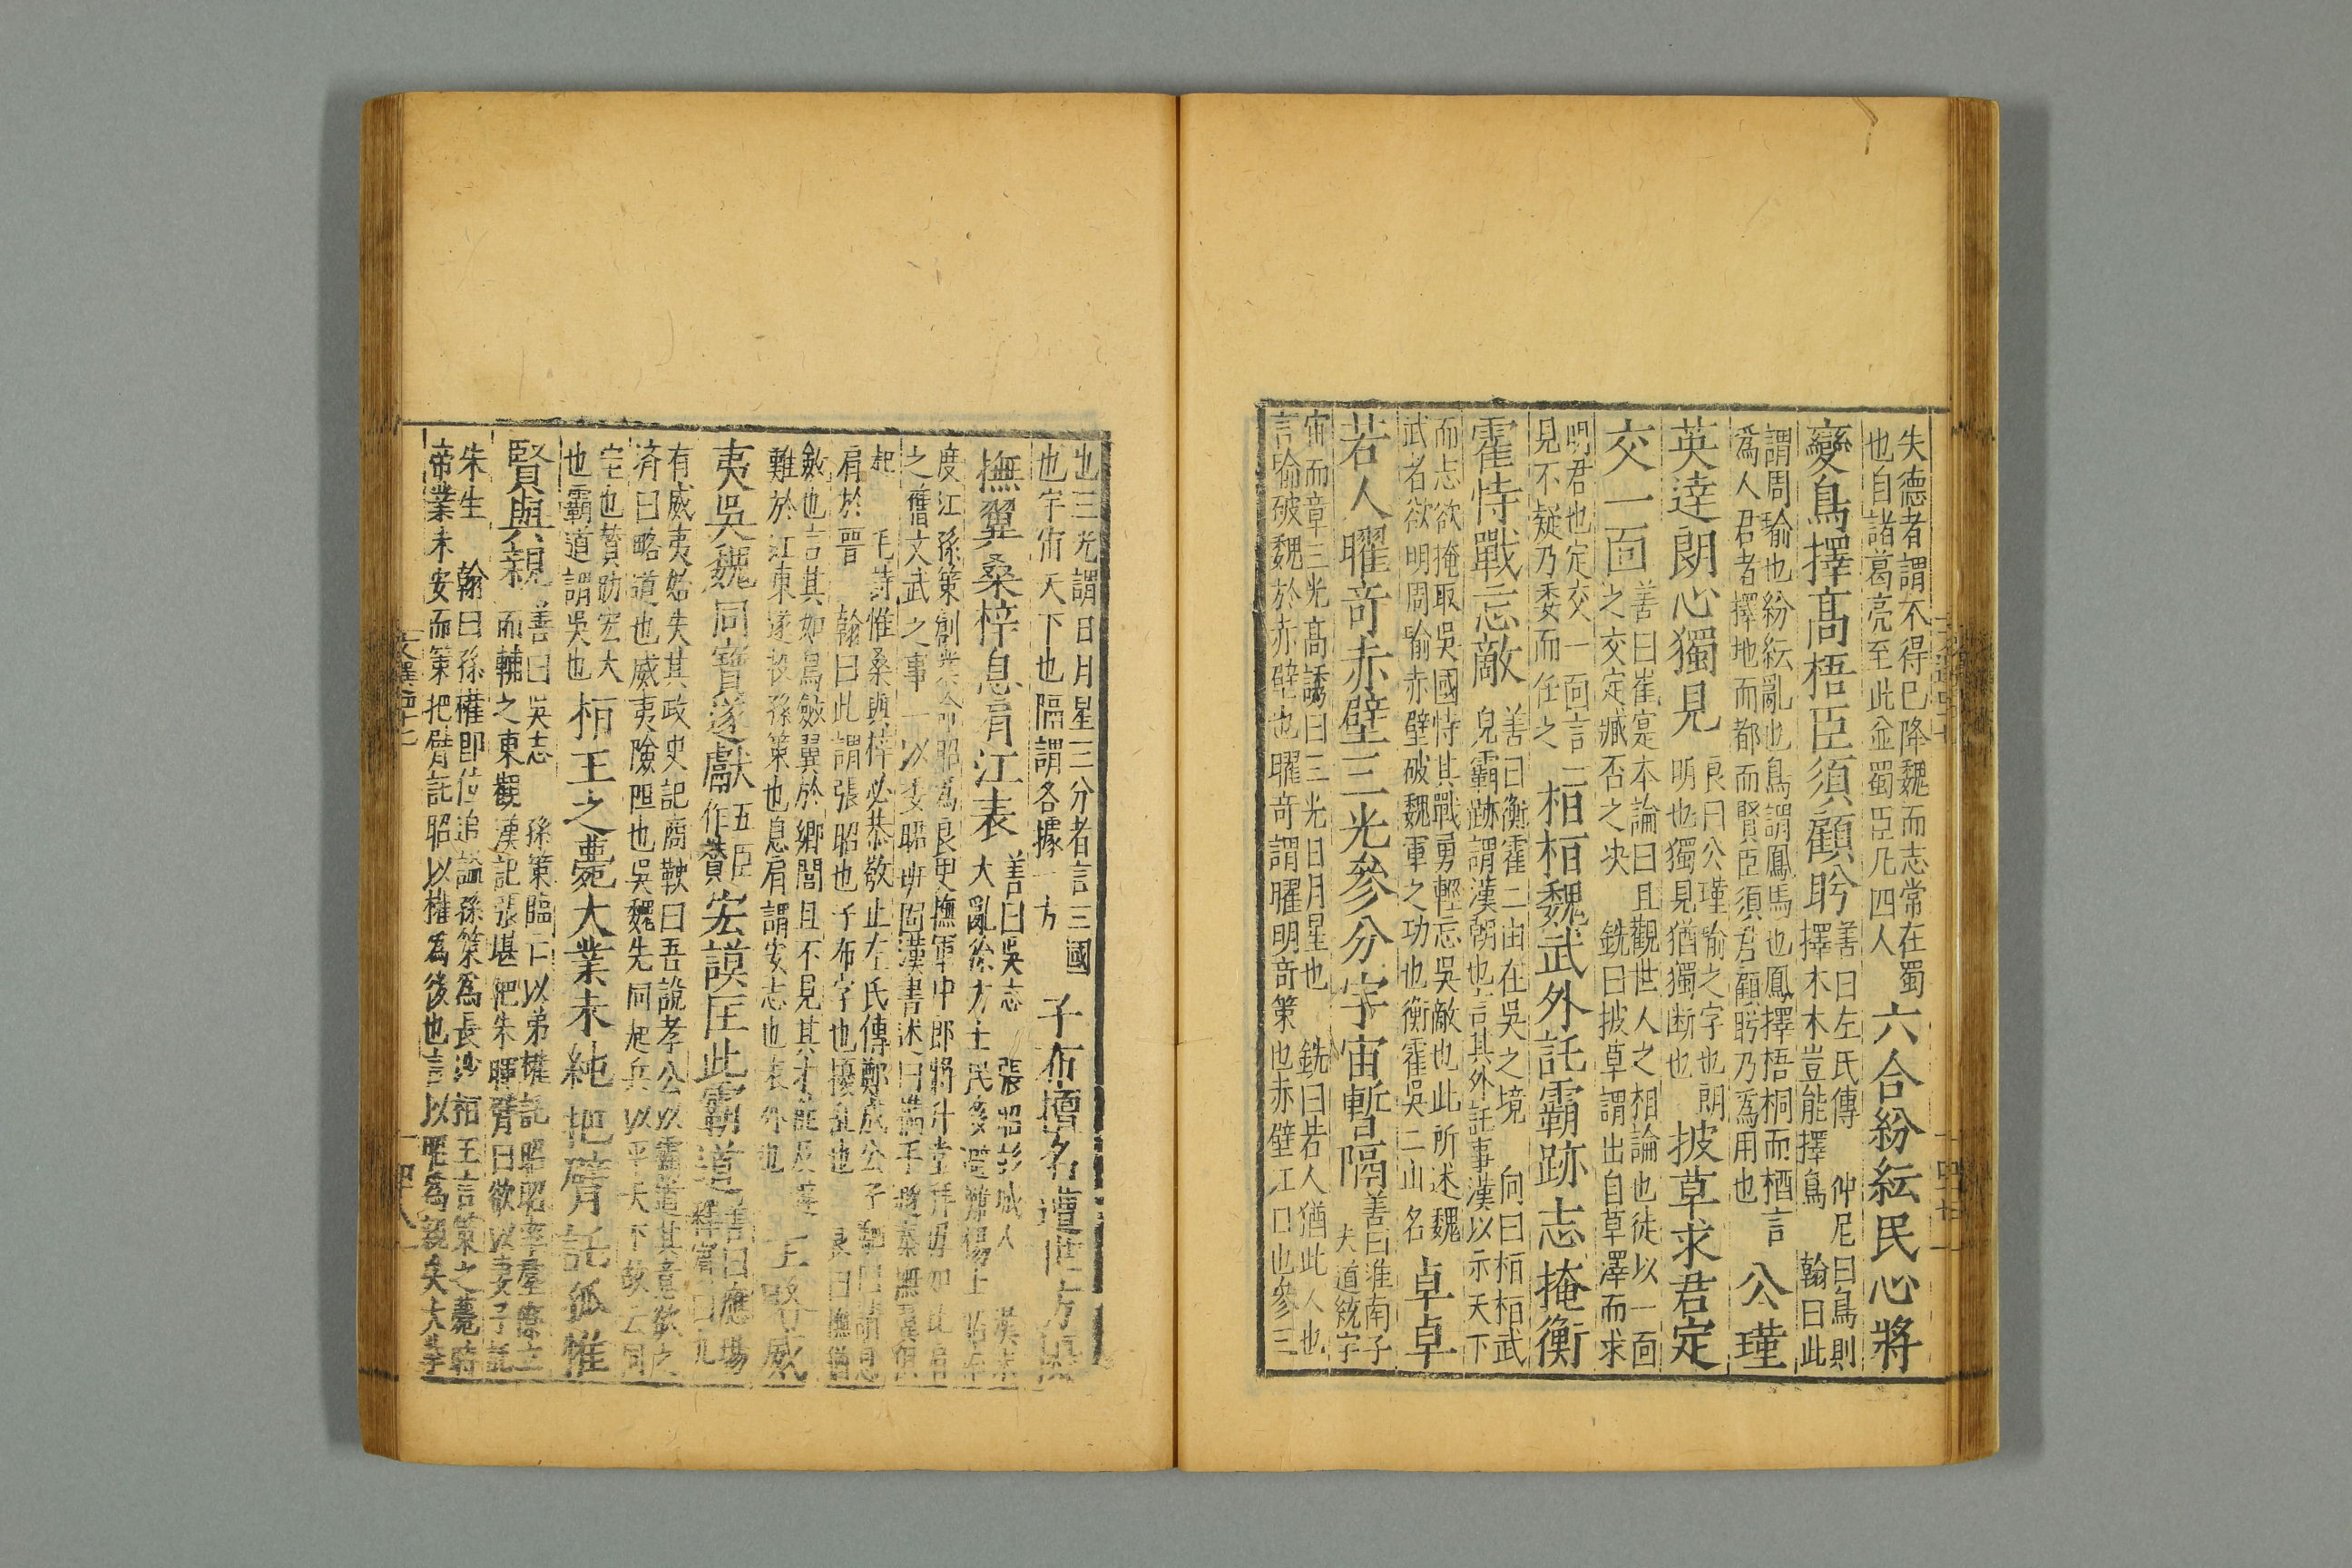 失德者謂不得已降魏而志常在蜀
也自諸葛亮至此並蜀臣凡四人
六合紛紜民心將
變鳥擇高梧臣須顧眄
善曰左氏傳仲尼曰鳥則
擇木木豈能擇鳥翰曰此
謂周瑜也紛紜亂也鳥謂鳳馬也鳳擇梧桐而栖言
爲人君者擇地而都而賢臣須君顧眄乃爲用也
公瑾
英達朗心獨見
良曰公瑾瑜之字也朗
明也獨見猶獨断也
披草求君定
交一面
善曰崔寔本論曰且觀世人之相論也徒以一面
之交定臧否之决銑曰披草謂出自草澤而求
明君也定交一面言一
見不疑乃委而任之
桓桓魏武外託霸跡志掩衡
霍恃戰忘敵
善曰衡霍二山在吳之境向曰桓桓武
皃霸跡謂漢朝也言其外託事漢以示天下
而志欲掩取吳國恃其戰勇輕忘吳敵也此所述魏
武者欲明周瑜赤壁破魏軍之功也衡霍吳二山名
卓卓
若人曜奇赤壁三光參分宇宙暫隔
善曰淮南子
夫道紘宇
宙而章三光高誘曰三光日月星也銑曰若人猶此人也
言瑜破魏於赤壁也曜奇謂曜明奇策也赤壁江口也參三
也三光謂日月星三分者言三國
也宇宙天下也隔謂各據一方
子布擅名遭世方擾
撫翼桑梓息肩江表
善曰吳志張昭彭城人漢末
大亂徐方士民多避難揚土昭皆
度江孫策創業命昭爲長史撫軍中郎將升堂拜母如比肩
之舊文武之事一以委昭班固漢書述曰攜手遯秦撫翼俱
起毛詩惟桑與梓必恭敬止左氏傳鄭成公子駟曰請息
肩於晋翰曰此謂張昭也子布字也擾亂也良曰撫猶
斂也言其如鳥斂翼於鄉閭且不見其才
難於江東遂投孫策也息肩謂安志也表外也
王略威
夷吳魏同寶遂獻
五臣
作贊
宏謨匡此霸道
善曰應瑒
釋賓曰九
有威夷始失其政史記商鞅曰吾說孝公以霸道其意欲之
済曰略道也威夷險阻也吳魏先同起兵以平天下故云同
宝也贊助宏大
也霸道謂吳也
桓王之薨大業未純把臂託孤惟
賢與親
善曰吳志孫策臨亡以弟權託昭昭率羣寮立
而輔之東觀漢記張堪把朱暉臂曰欲以妻子託
朱生翰曰孫權即位追謚孫策爲長沙桓王言策之薨時
帝業未安而策把臂託昭以權爲後也言以昭爲親